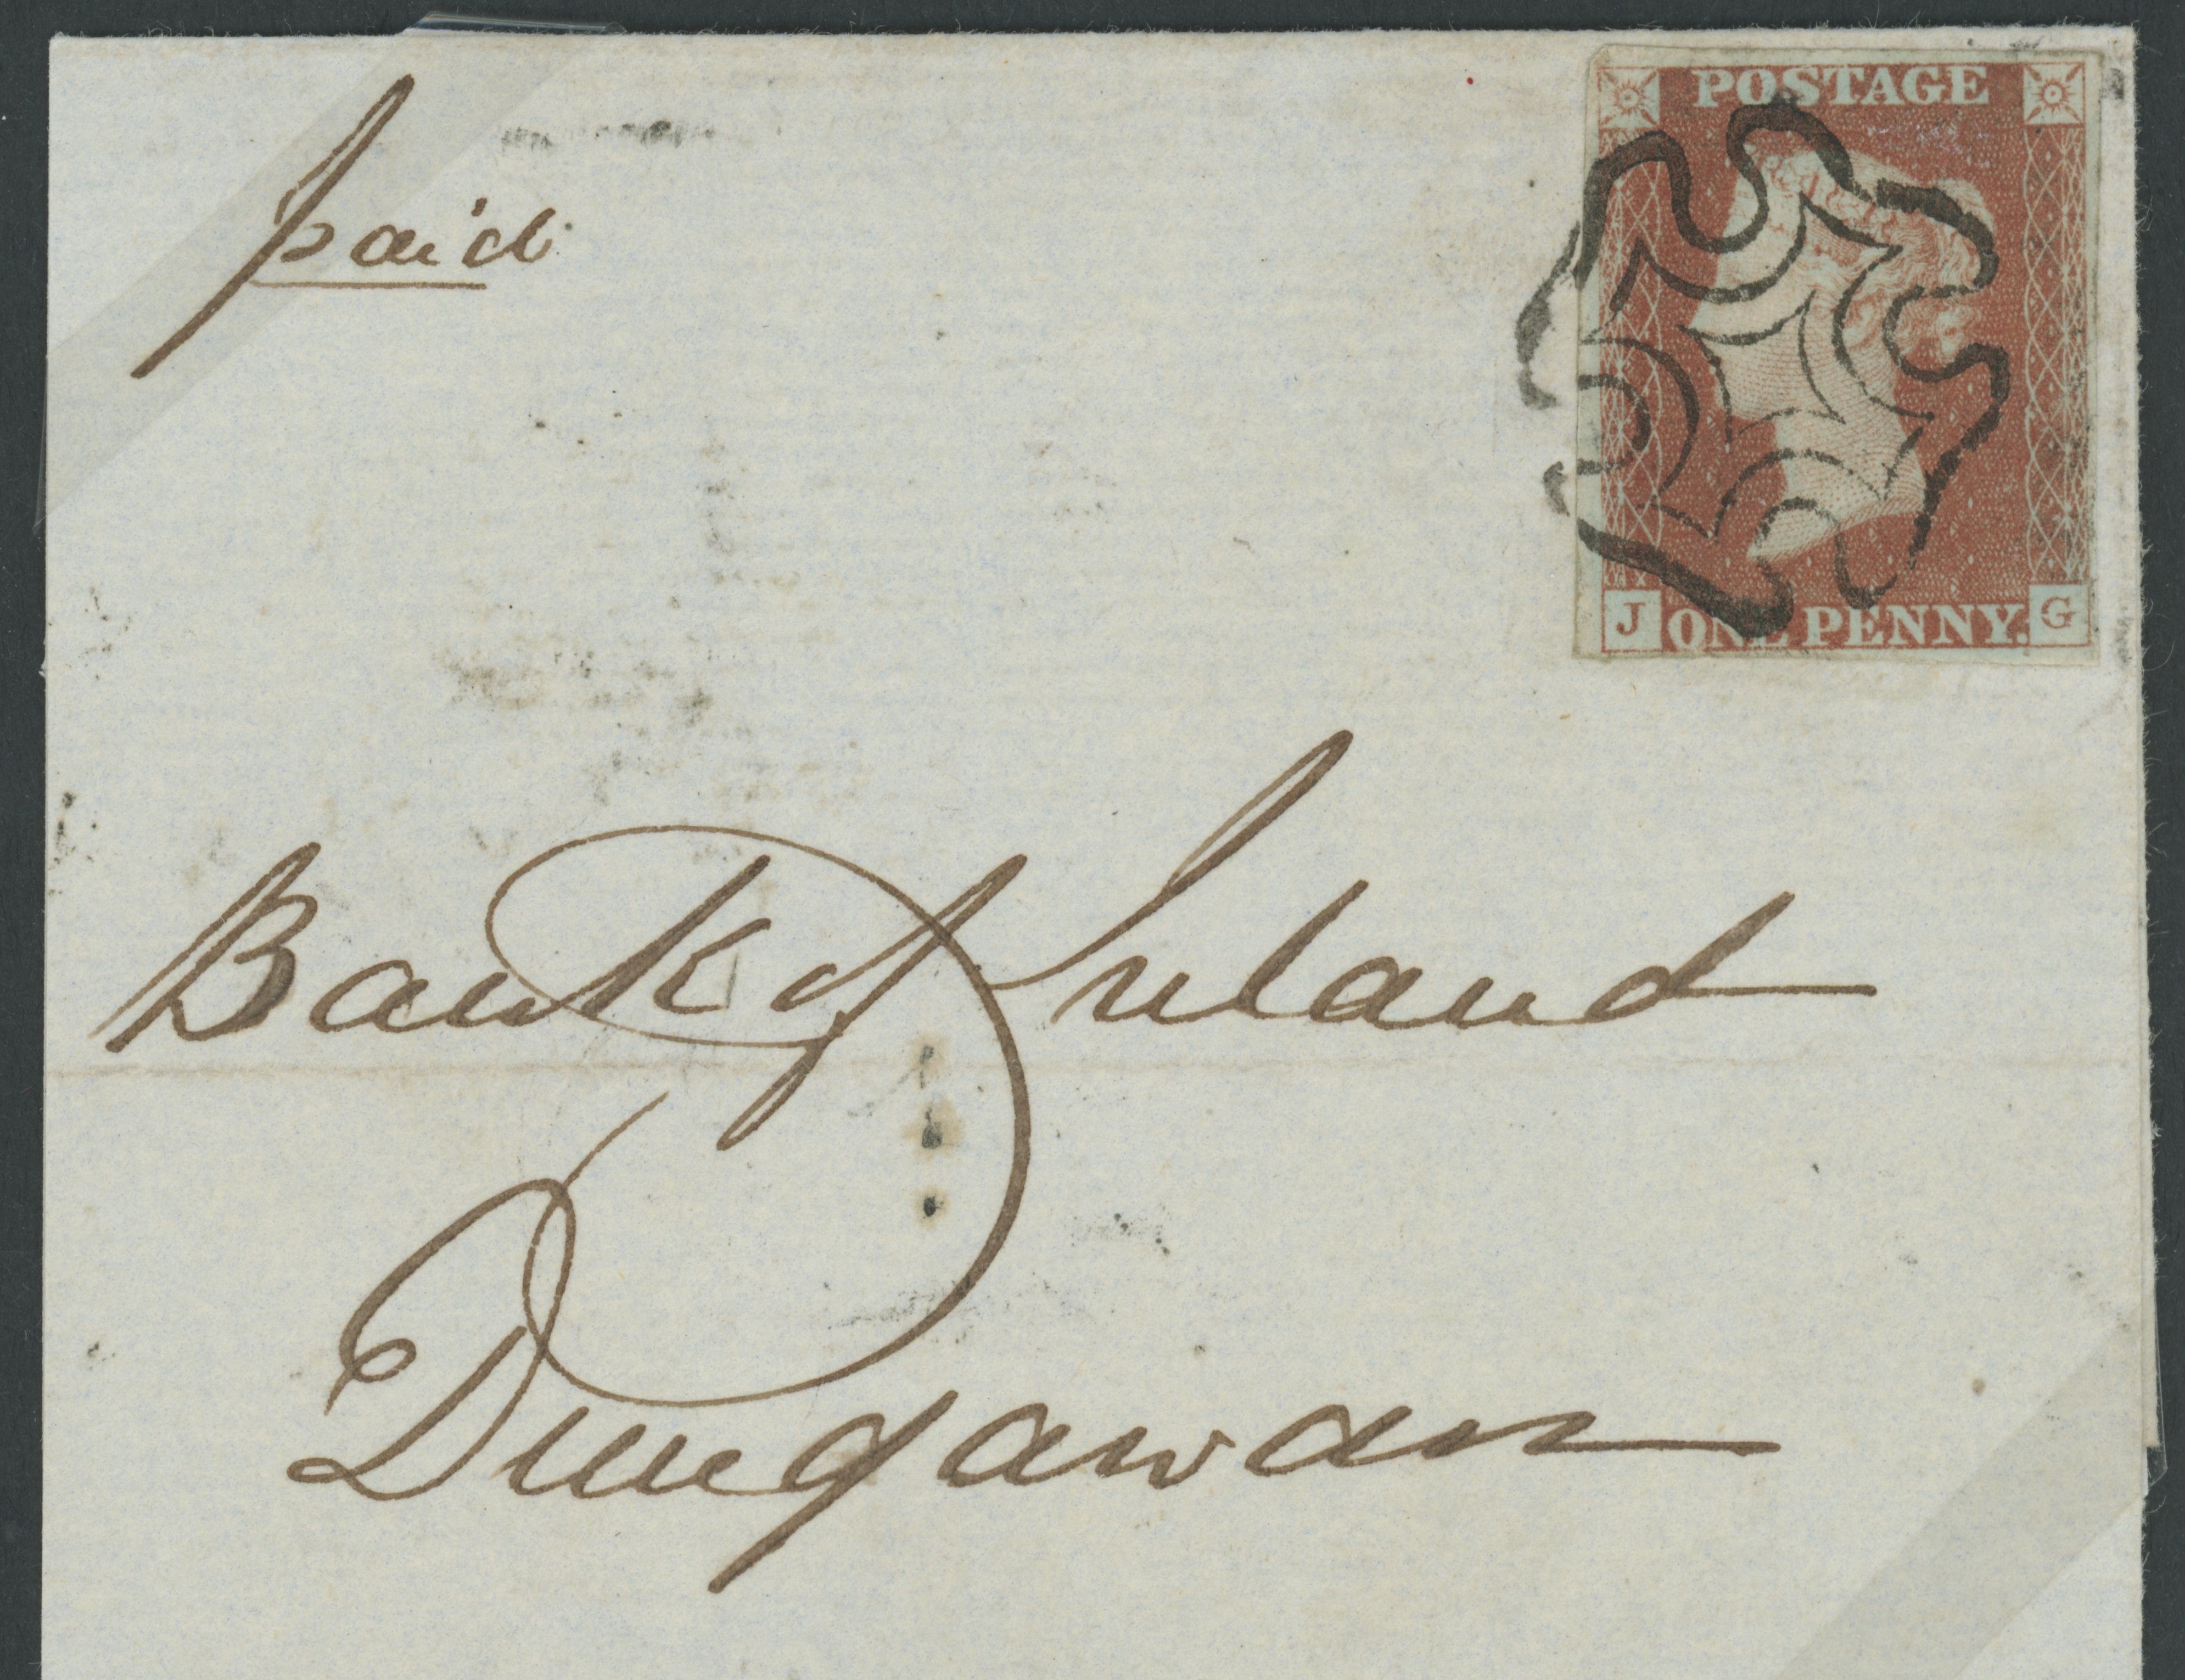 paid
POSTAGE
J ONE PENNY. G
Bank of Ireland
Dungarvan